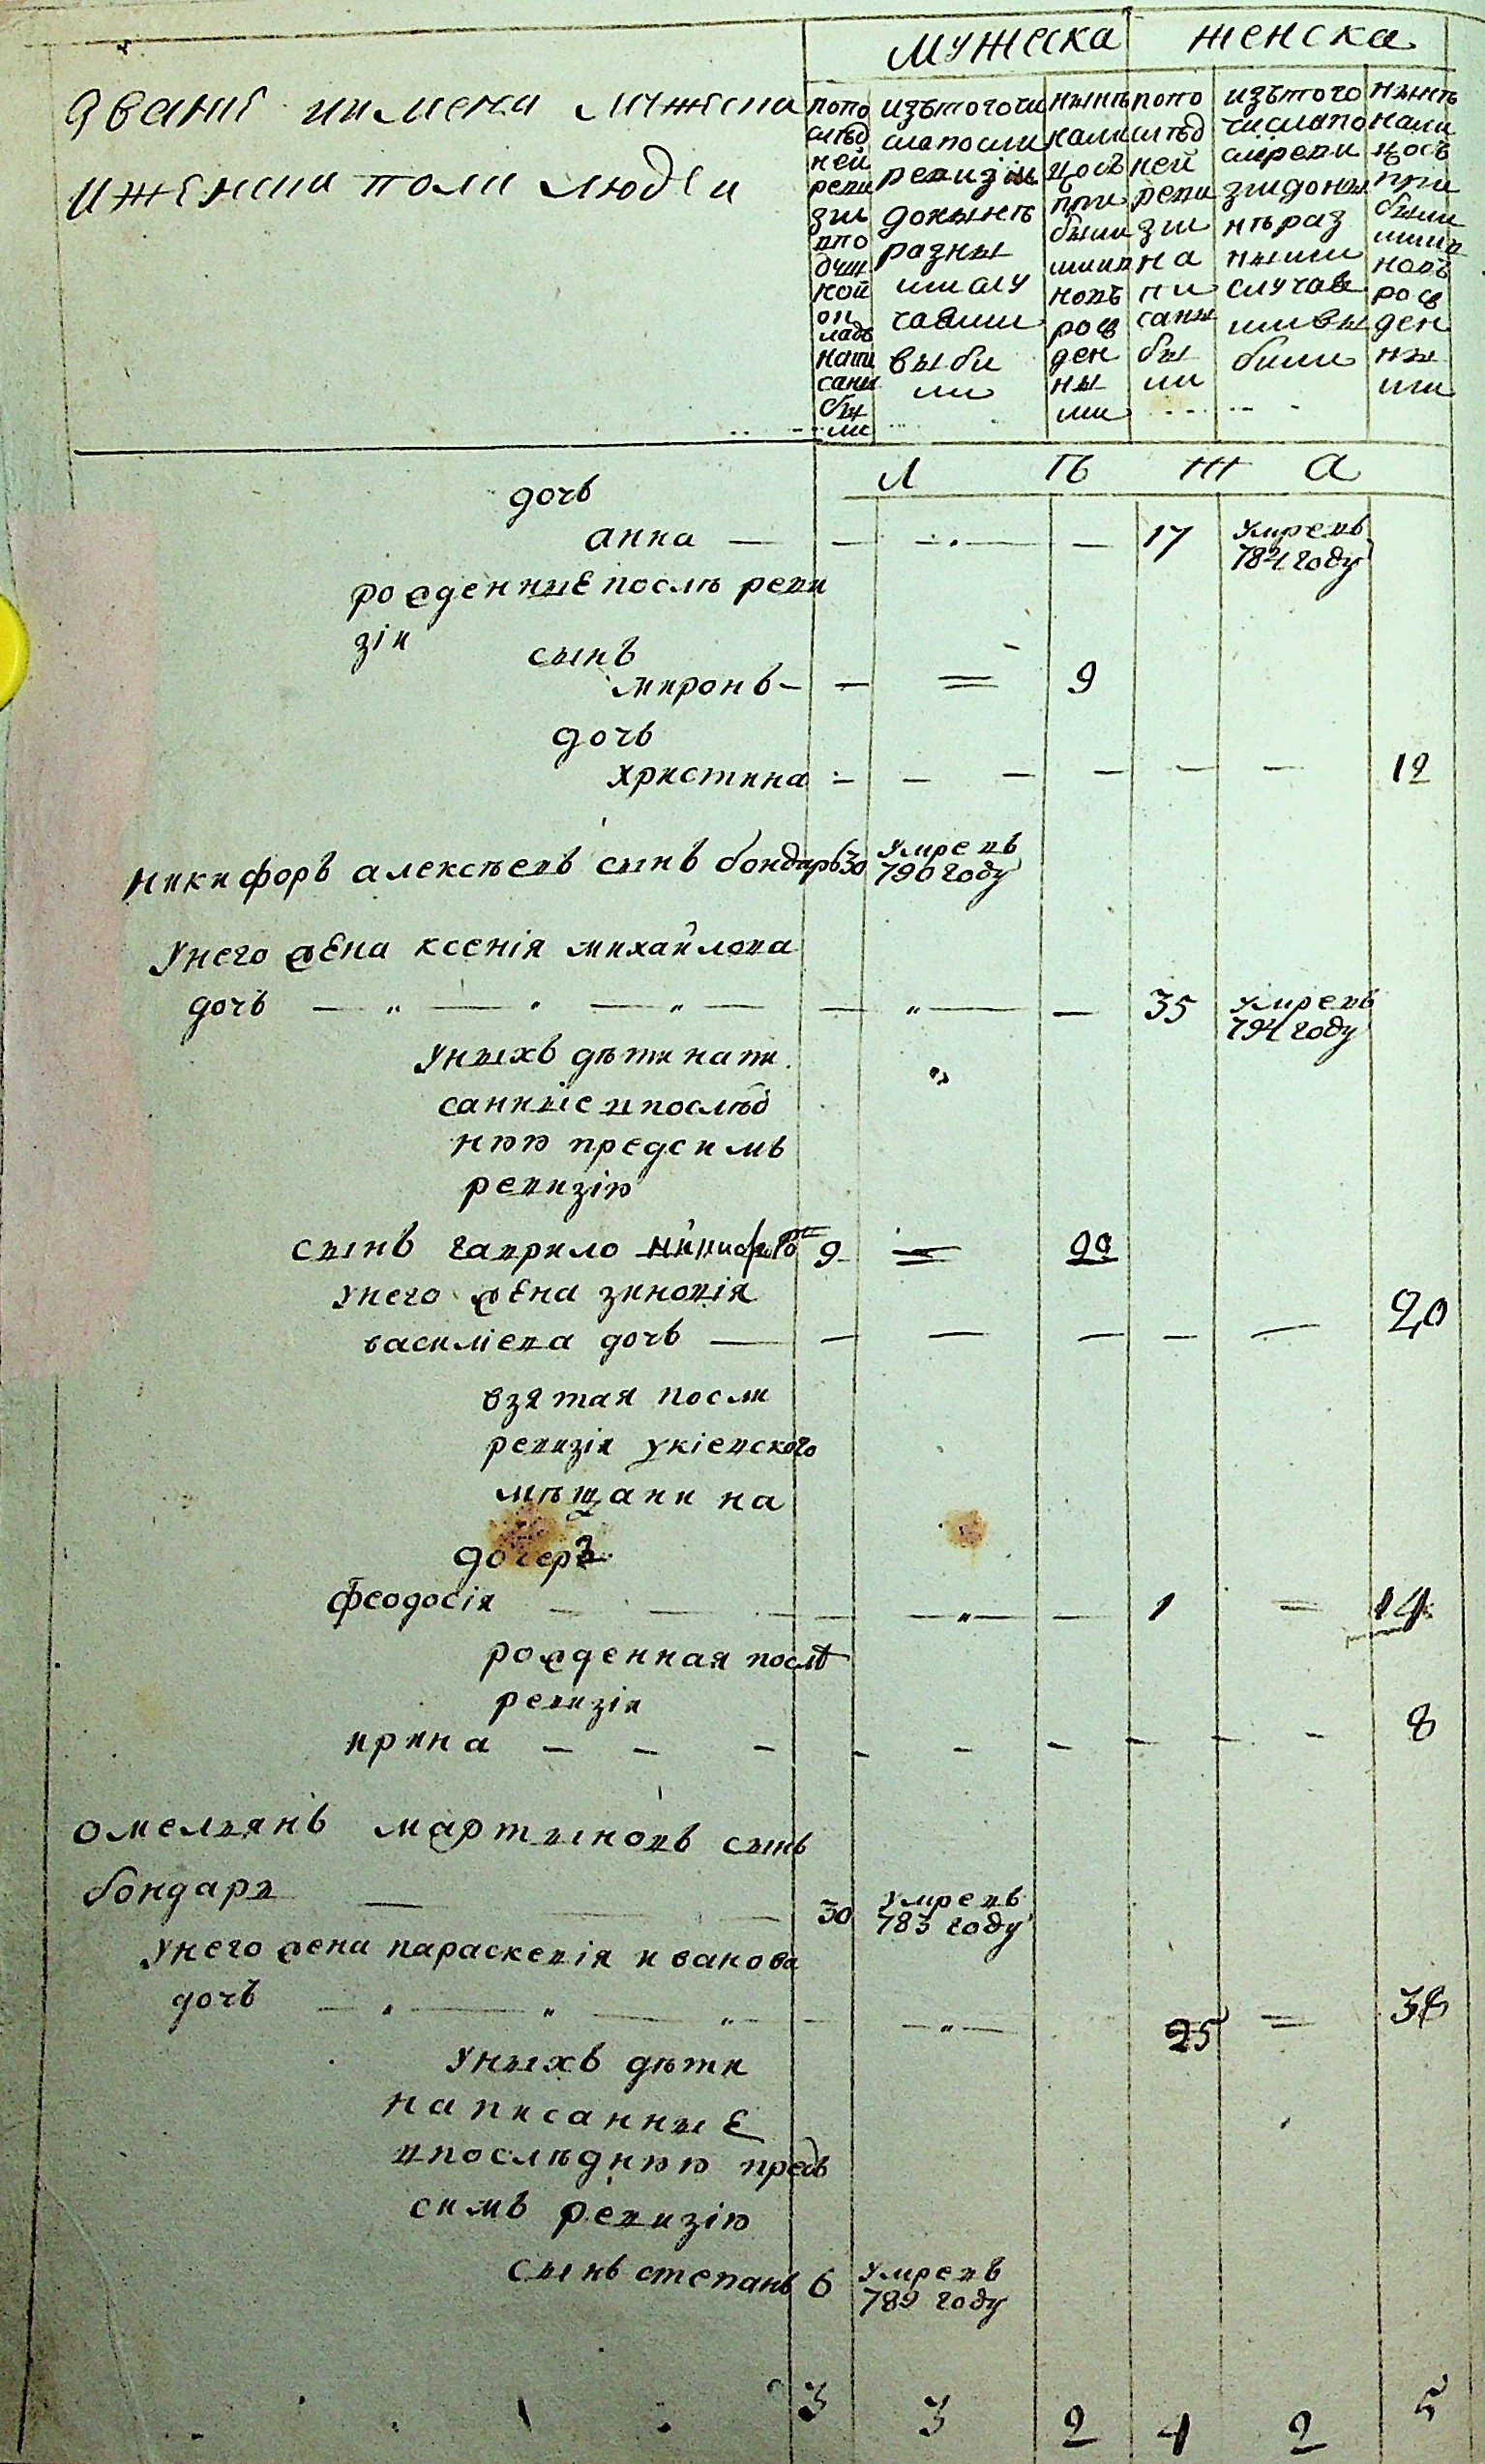 мужеска женска
званіе иимена мужеска
иженска пола людеи
попо
слѣд
ней
реви
зіи
впо
душ
ной
ок
ладъ
напи
саны
бы
ли
изътогочи
слапосли
ревизіи
донынѣ
разны
мислу
чаями
выби
ли
нынѣ
нали
цосъ
при
былы
мии
новъ
рож
ден
ны
ми
попо
слѣд
ней
реви
зіи
на
пи
саны
бы
ли
изътого
числапо
слѣреви
зіидоны
нѣраз
ными
случая
мивы
били
нынѣ
нали
цосъ
при
были
мии
новъ
рож
ден
ны
ми
л ѣ т а
дочь
анна — — — — 17 умревъ
784 году
рожденныепослѣ реви
зіи
сынъ
миронъ — — = 9
дочь
христина — — — — — — 12
никифоръ алексѣевъ сынъ бондарь 30 умревъ
790 году
унего жена ксенія михайлова
дочь — „ — „ — „ — — „ — — 35 умревъ
794 году
уныхъ дѣти напи
санныіе впослѣд
нюю предсимъ
ревизію
сынъ гаврило 9 = 22
унего жена зиновія
василіева дочь — — — — — — 20
взятая посли
ревизіи укіевского
мѣщани на
дочерѣ
феодосія — — — — — „ — — 1 = 14
рожденная послѣ
ревизіи
ирина — — — — — — — — — 8
омелянъ мартыновъ сынъ
бондарь — — — 30 умревъ
783 году
унего жена параскевія иванова
дочь — „ — „ — „ — — — „ — 25 = 38
уныхъ дѣти
написанные
впослѣднюю предъ
симъ ревизію
сынъ степанъ 6 умревъ
789 году
3 3 2 4 2 5